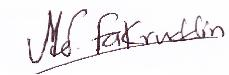 Md. Fakruddin